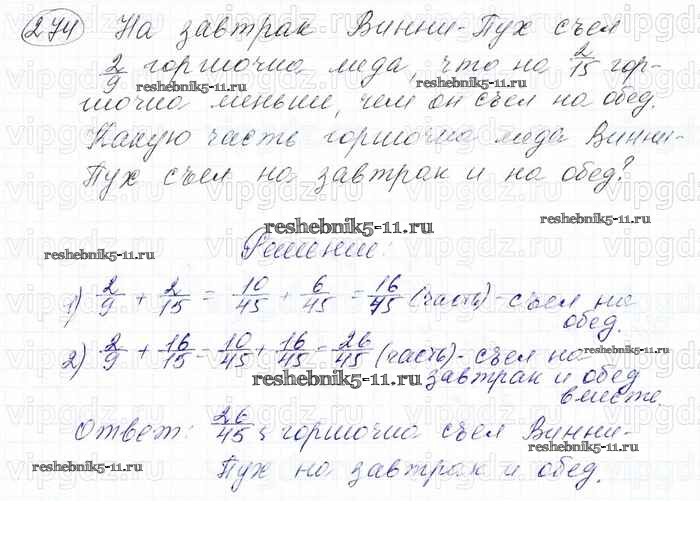 274 На завтрак Винни-Пух съел
2/9 горшочка меда, что на 2/15 гор-
шочка меньше, чем он съел на обед.
Какую часть горшочка меда Винни-
Пух съел на завтрак и на обед?
Решение:
1) 2/9 + 2/15 = 10/45 + 6/45 = 16/45 (часть) - съел на
обед.
2) 2/9 + 16/15 = 10/45 + 16/45 = 26/45 (часть) - съел на
завтрак и обед
вместе.
Ответ: 26/45 горшочка съел Винни-
Пух на завтрак и обед.
reshebnik5-11.ru
reshebnik5-11.ru
reshebnik5-11.ru
reshebnik5-11.ru
reshebnik5-11.ru
reshebnik5-11.ru
reshebnik5-11.ru
reshebnik5-11.ru
reshebnik5-11.ru